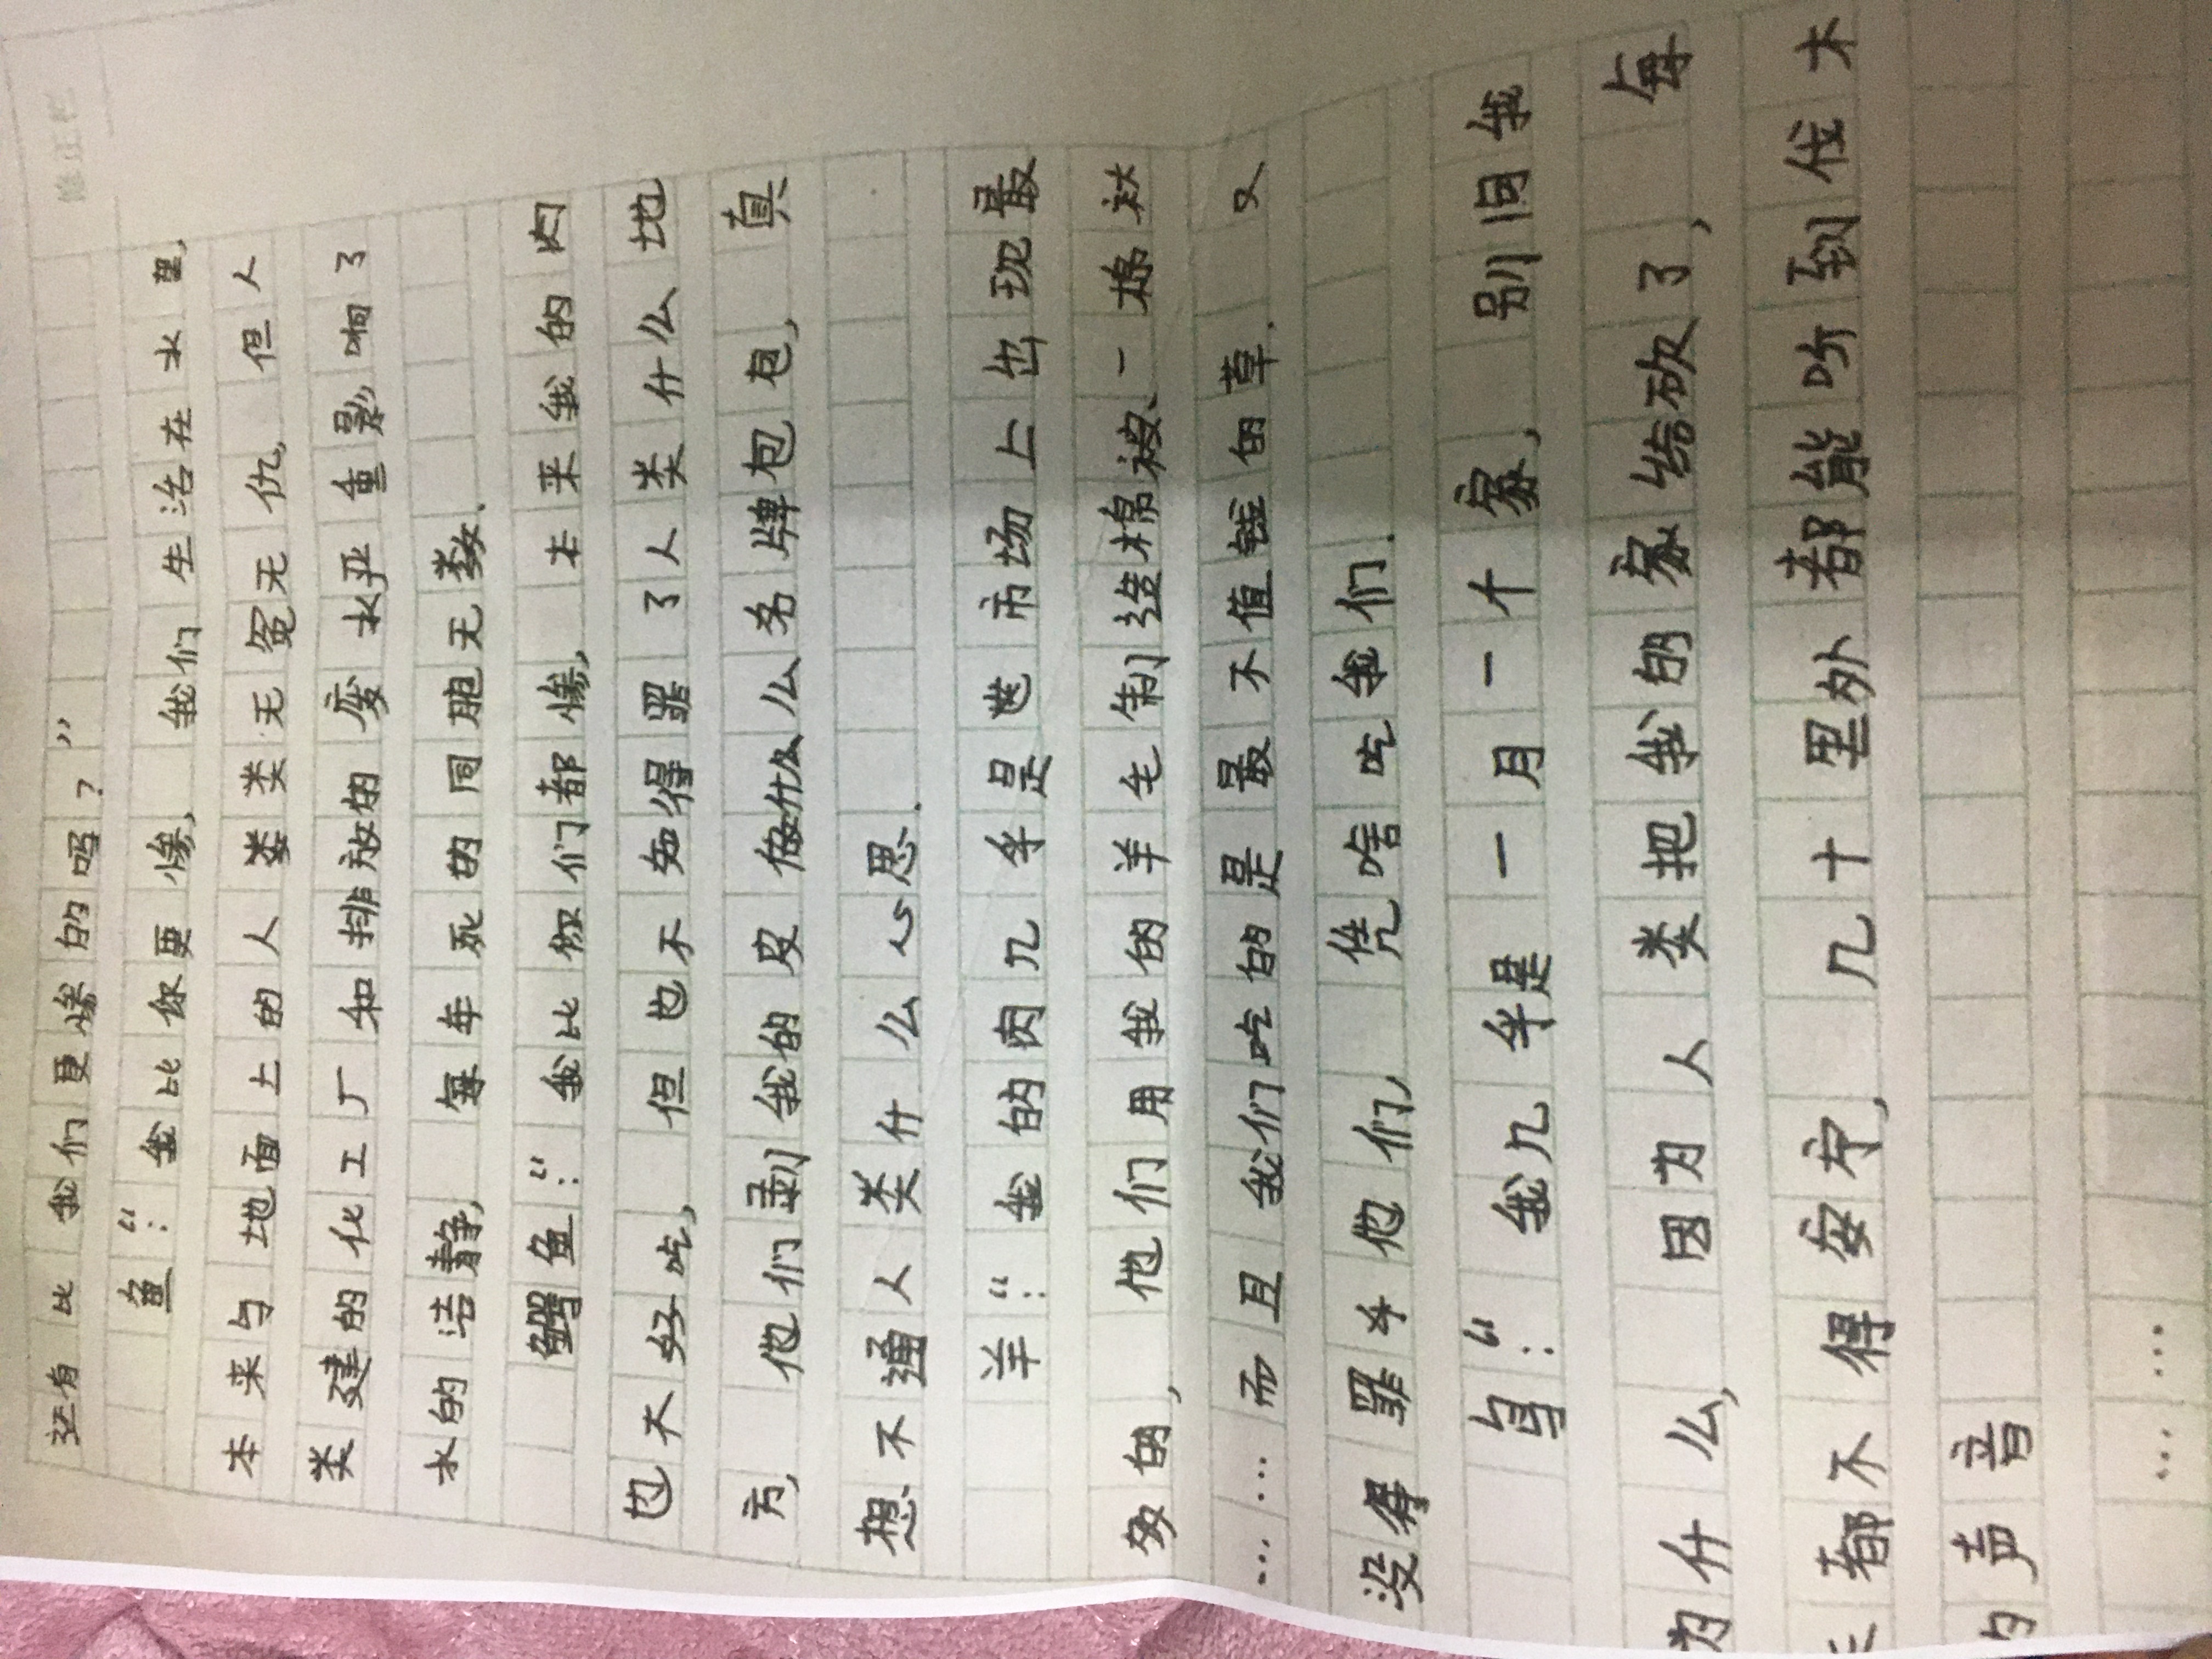 修正栏
还有比我们更惨的吗？”
鱼：“我比你更惨，我们生活在水里，
本来与地面上的人类类无冤无仇，但人
类建的化工厂和排放的废水严重影响了
水的洁静，每年死的同胞无数．
鳄鱼：“我比你们都惨，本来我的肉
也不好吃，但也不知得罪了人类什么地
方，他们剥我的皮做什么么名牌包包，真
想不通人类什么心思．
羊：“我的肉几乎是逃市场上出现最
多的，他们用我的羊毛制造棉被、一棉袄
……而且我们吃的是最不值钱的草．又
没得罪乎他们，凭啥吃我们．
鸟：“我几乎是一月一个家，别问我
为什么，因为人类把我的家给砍了，每
天都不得安宁，几十里外都能听到伐木
的声音
……